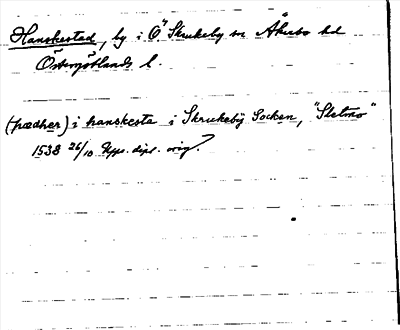 Hanskestad, by i Ö Skrukeby sn Åkerbo hd
Östergötlands l.
(pædher) i hanskesta i Skrukeby Socken, "Sletmo"
1538 26/10 Upps. dipl. orig.